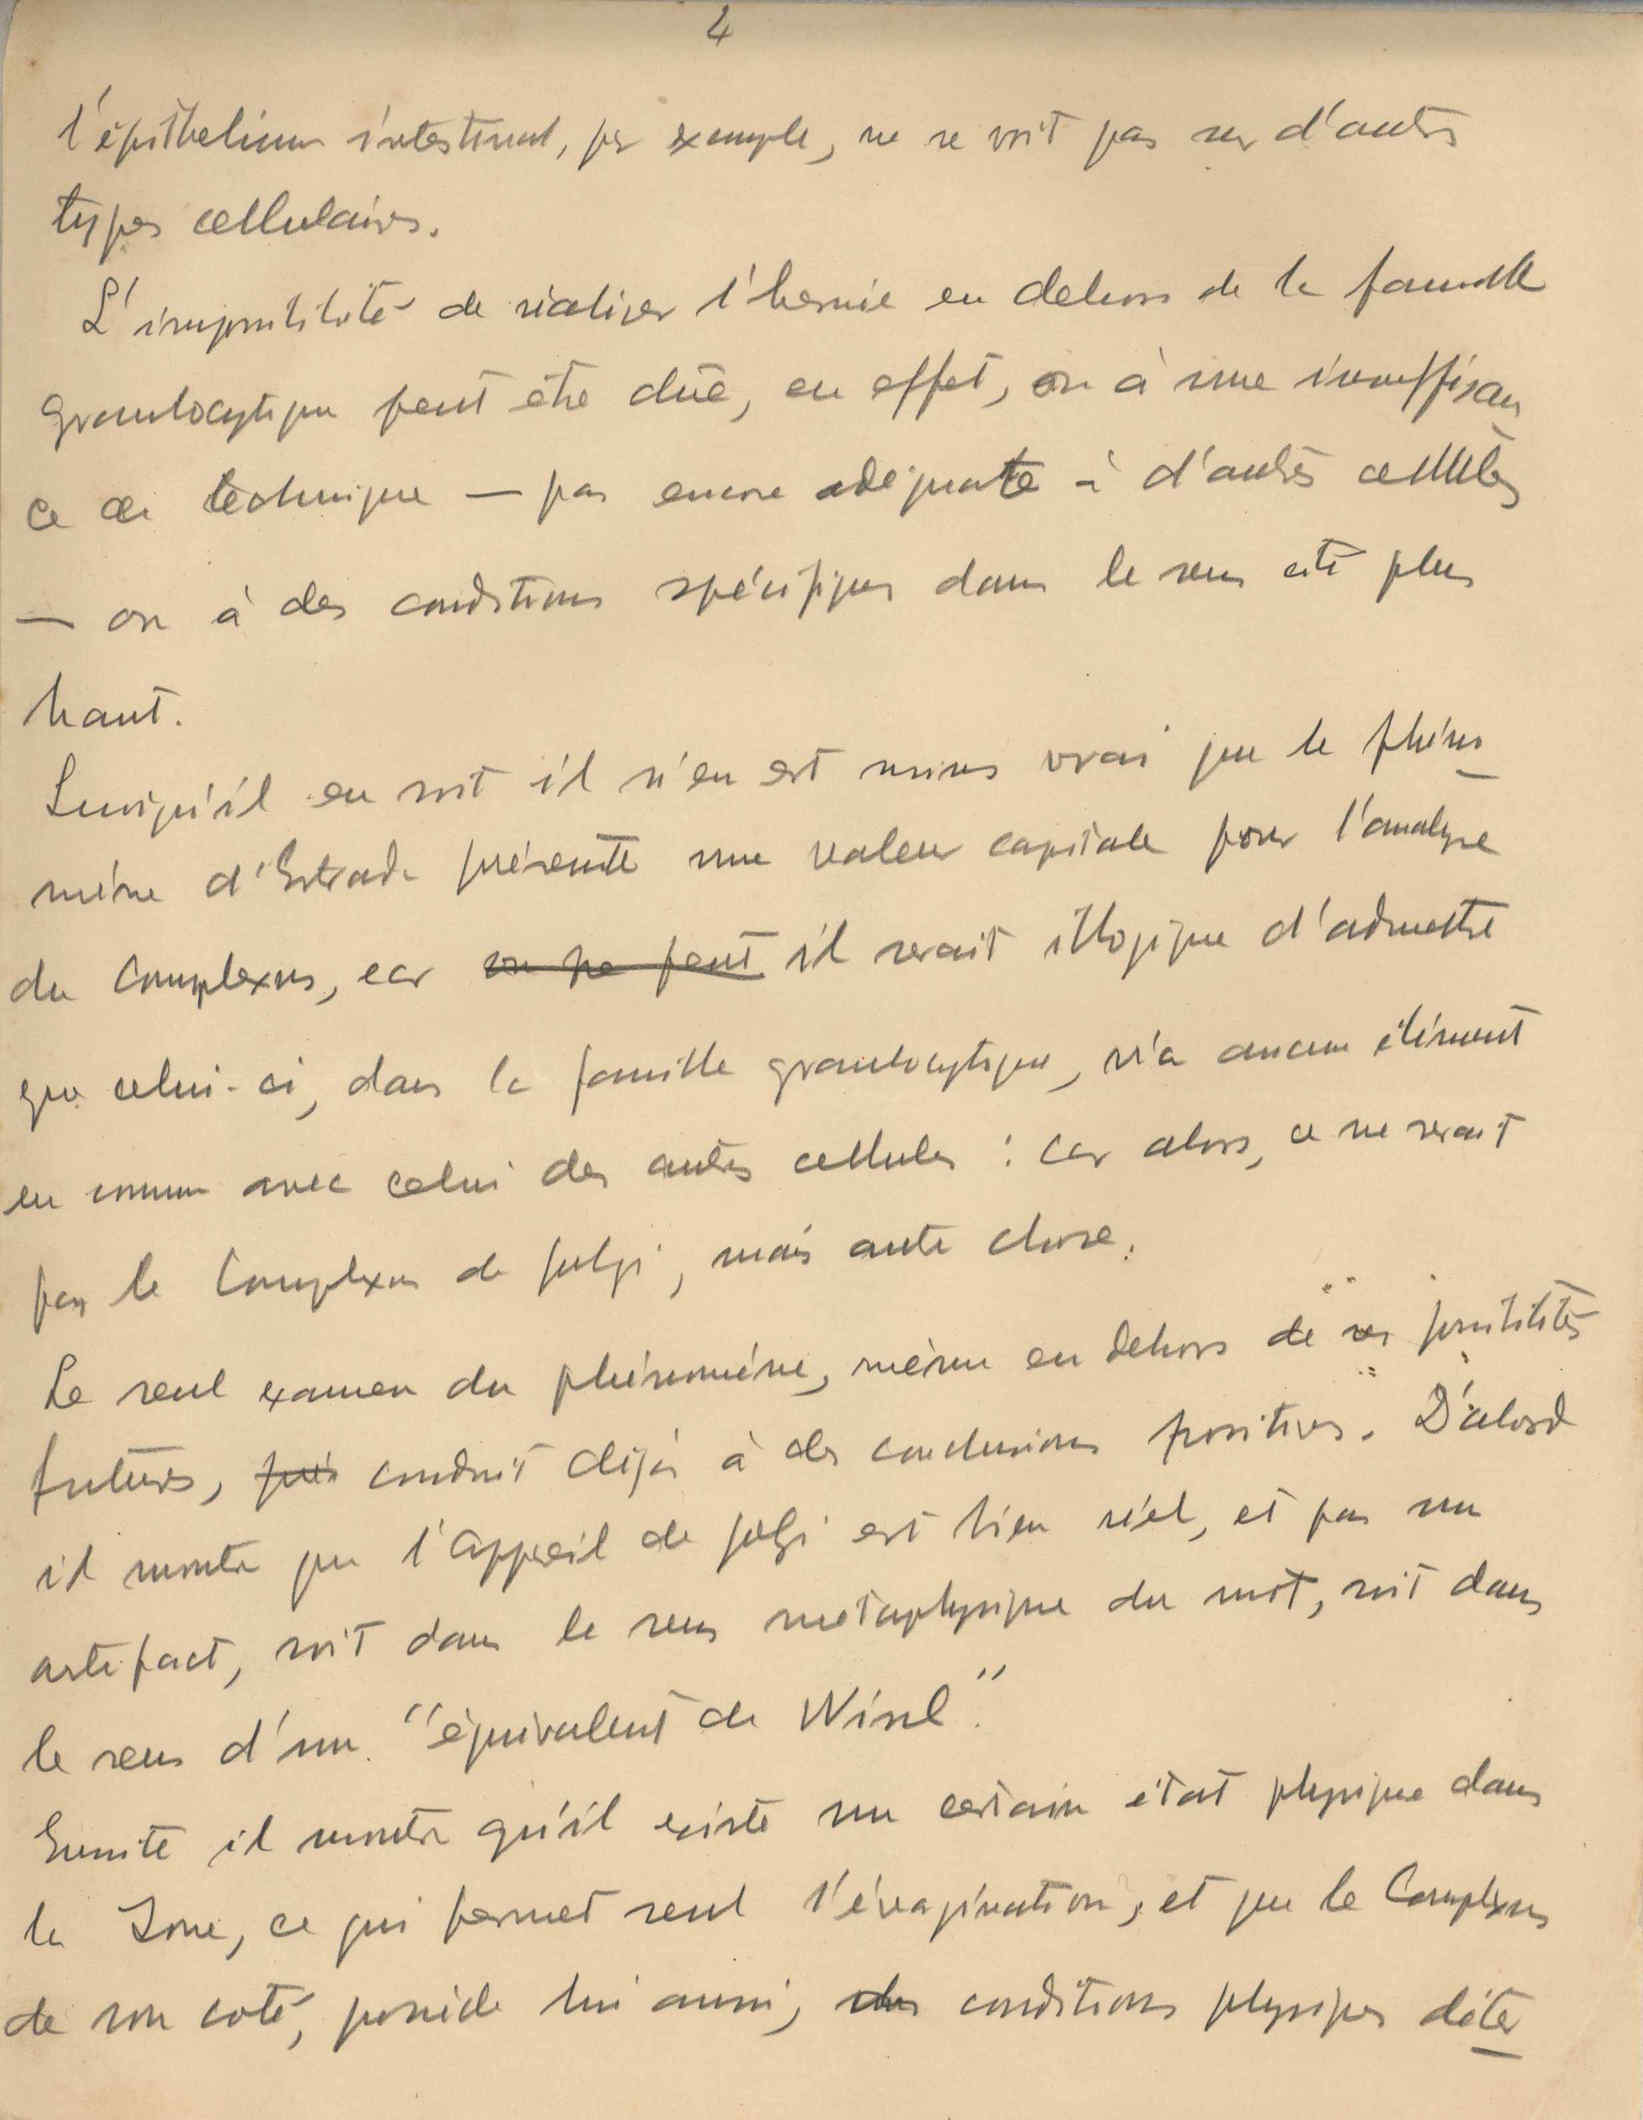 4
l'épithelium intestinal, par exemple, ne se voit pas sur d'autres
types cellulaires.
L'impossibilité de réaliser l'hernie en dehors de la famille
granulocytique peut être dûe, en effet, ou à une insuffisan
ce de technique — pas encore adéquate à d'autres cellules
— ou à des conditions spécifiques dans le sens cité plus
haut.
Quoiqu'il en soit il n'en est moins vrai que le phéno
mène d'Estrada présente une valeur capitale pour l'analyse
du Complexus, car on ne peut il serait illogique d'admettre
que celui-ci, dans la famille granulocytique, n'a aucun élément
en commun avec celui des autres cellules : car alors, ce ne serait
pas le Complexus de Golgi, mais autre chose.
Le seul examen du phénomène, même en dehors de ses possibilités
futures, conduit déjà à des conclusions positives. D'abord
il montre que l'appareil de Golgi est bien réel, et pas un
artefact, soit dans le sens metaphysique du mot, soit dans
le sens d'un "équivalent de Nissl".
Ensuite il montre qu'il existe un certain état physique dans
la Zone, ce qui permet seul l'évagination, et que le Complexus
de son coté, possède lui aussi, des conditions physiques déter